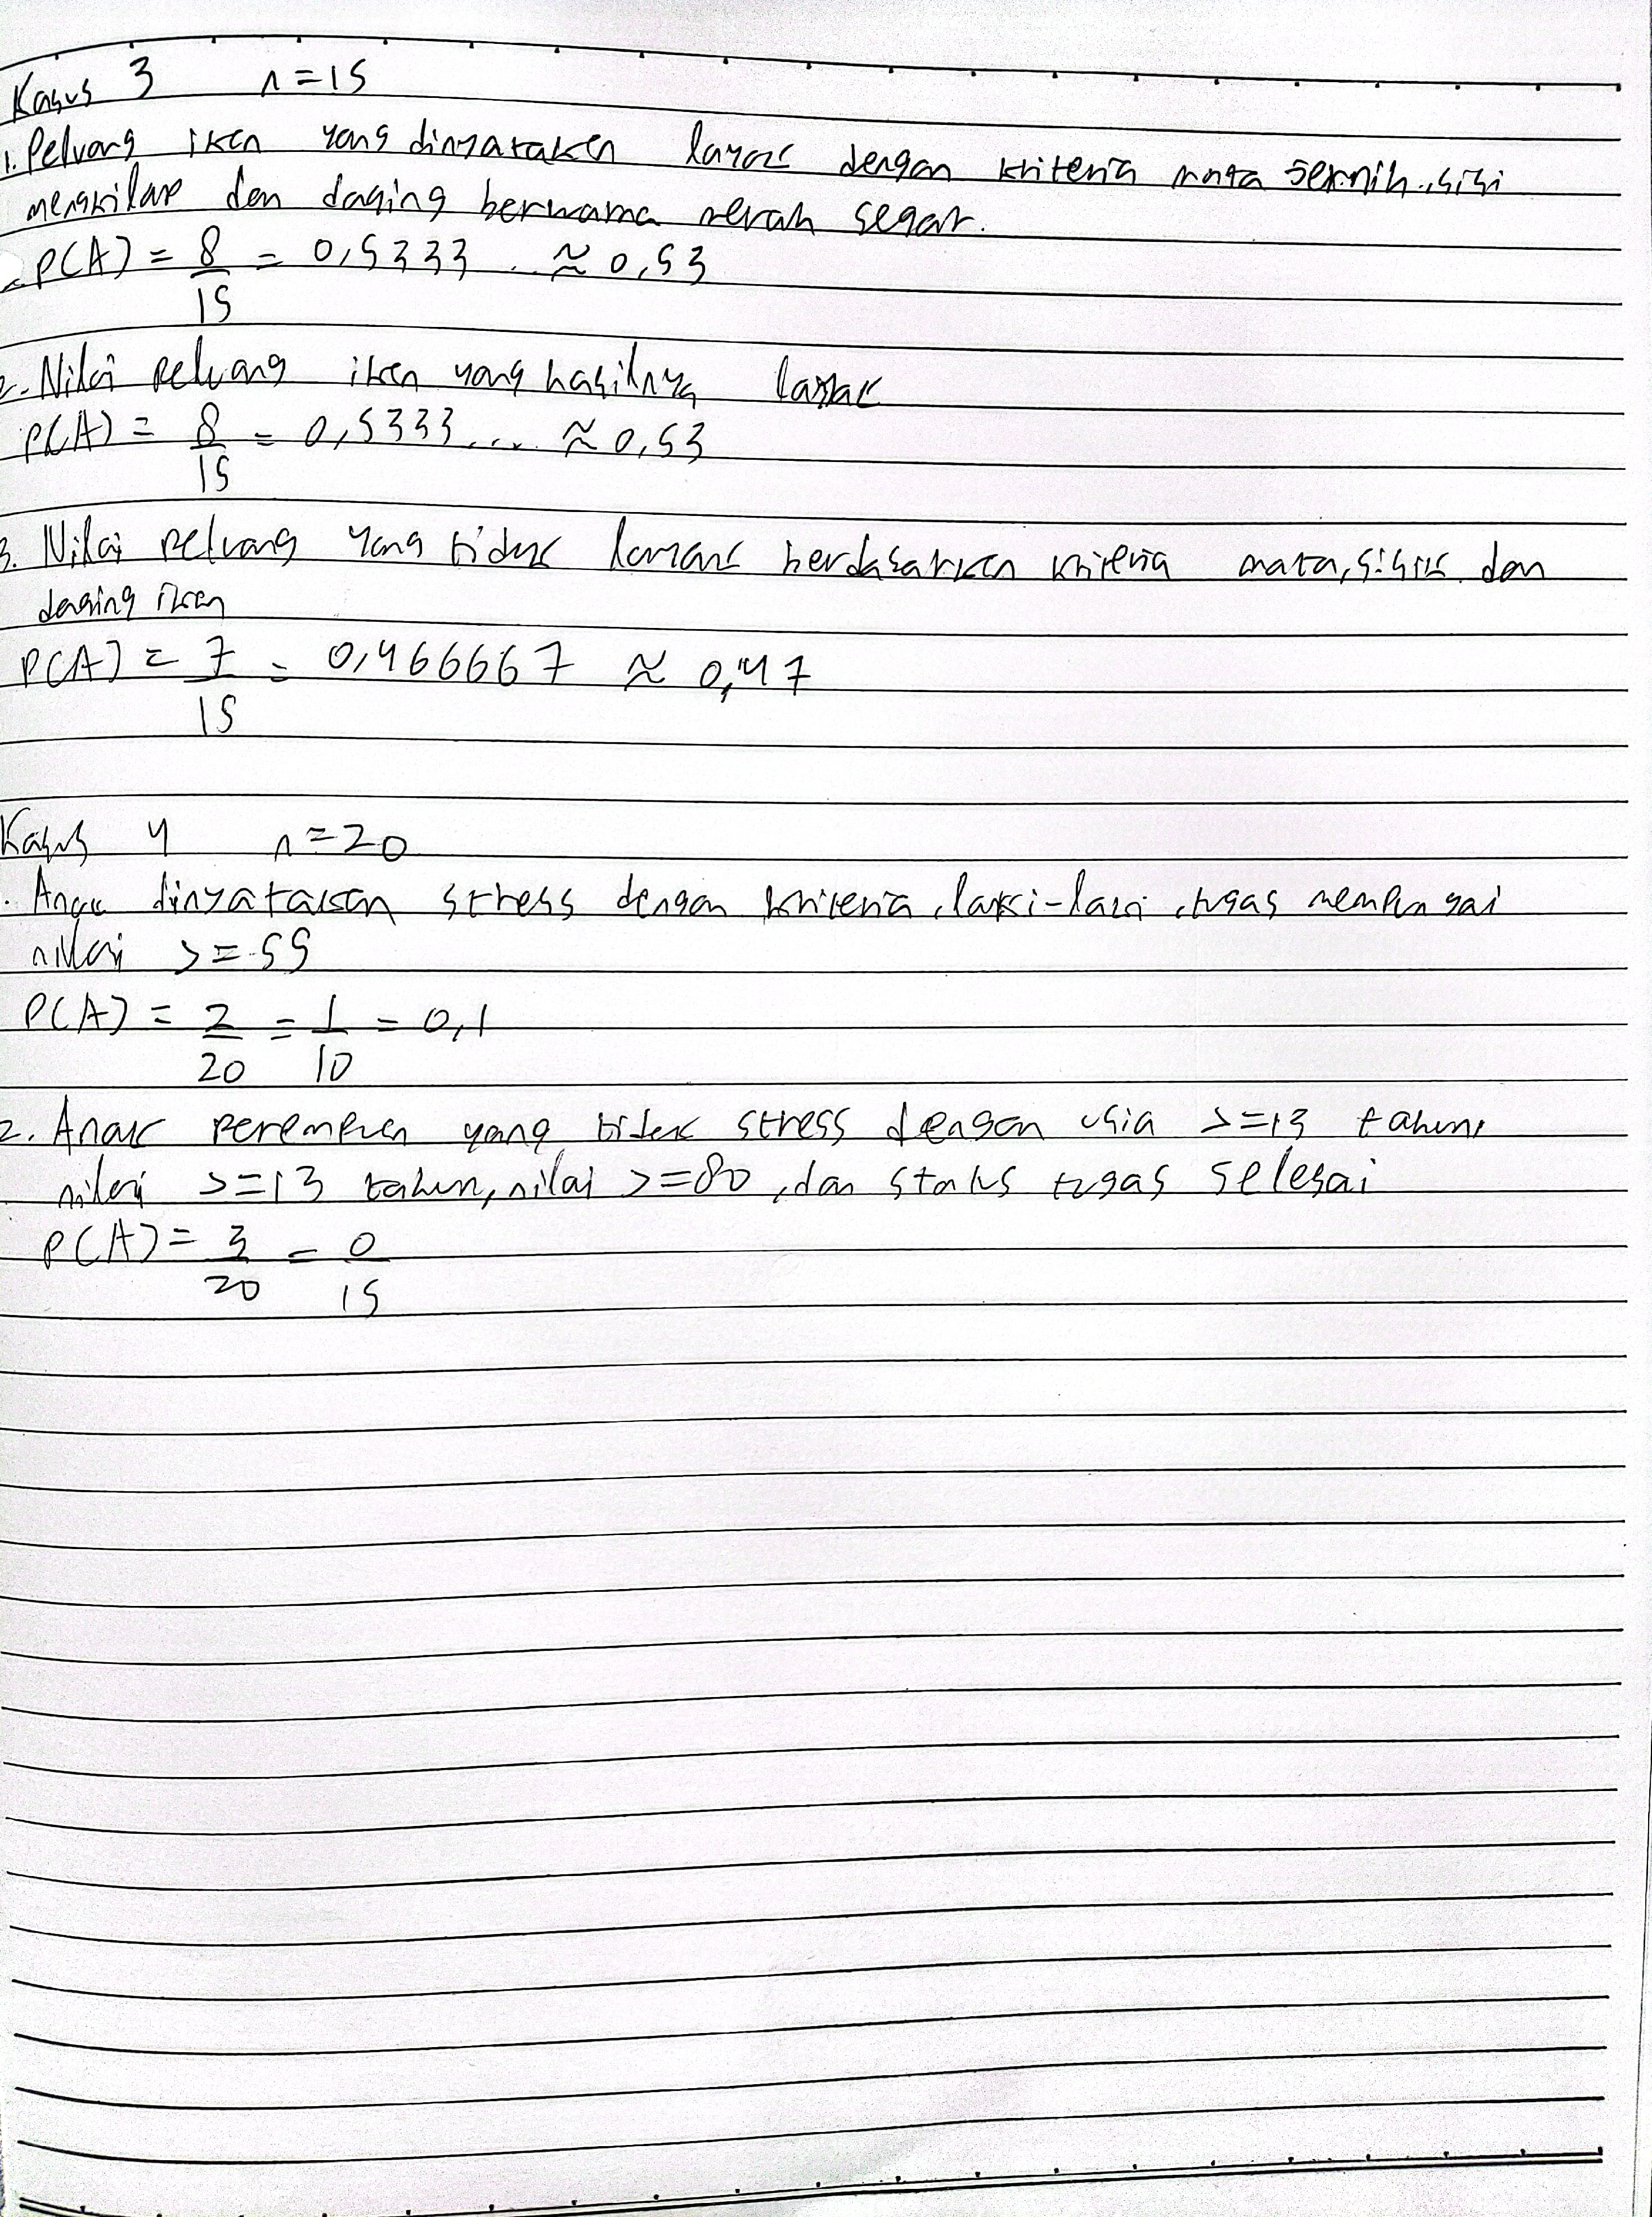 Kasus 3 n=15
1. Peluang ikan yang dinyatakan layak dengan kriteria mata jernih, sisi
mengkilap dan daging berwarna merah segar.
P(A) = 8/15 = 0,5333.. ≈ 0,53
2. Nilai peluang ikan yang hasilnya layak
P(A) = 8/15 = 0,5333... ≈ 0,53
3. Nilai peluang yang tidak layak berdasarkan kriteria mata, sisik dan
daging ikan
P(A) = 7/15 = 0,466667 ≈ 0,47
Kasus 4 n=20
. Anak dinyatakan stress dengan kriteria, laki-laki, tugas
nilai >=55
P(A) = 2/20 = 1/10 = 0,1
2. Anak perempuan yang tidak stress dengan usia >=13 tahun,
nilai >=13 tahun, nilai >=80, dan status tugas selesai
P(A) = 3/20 = 0/15